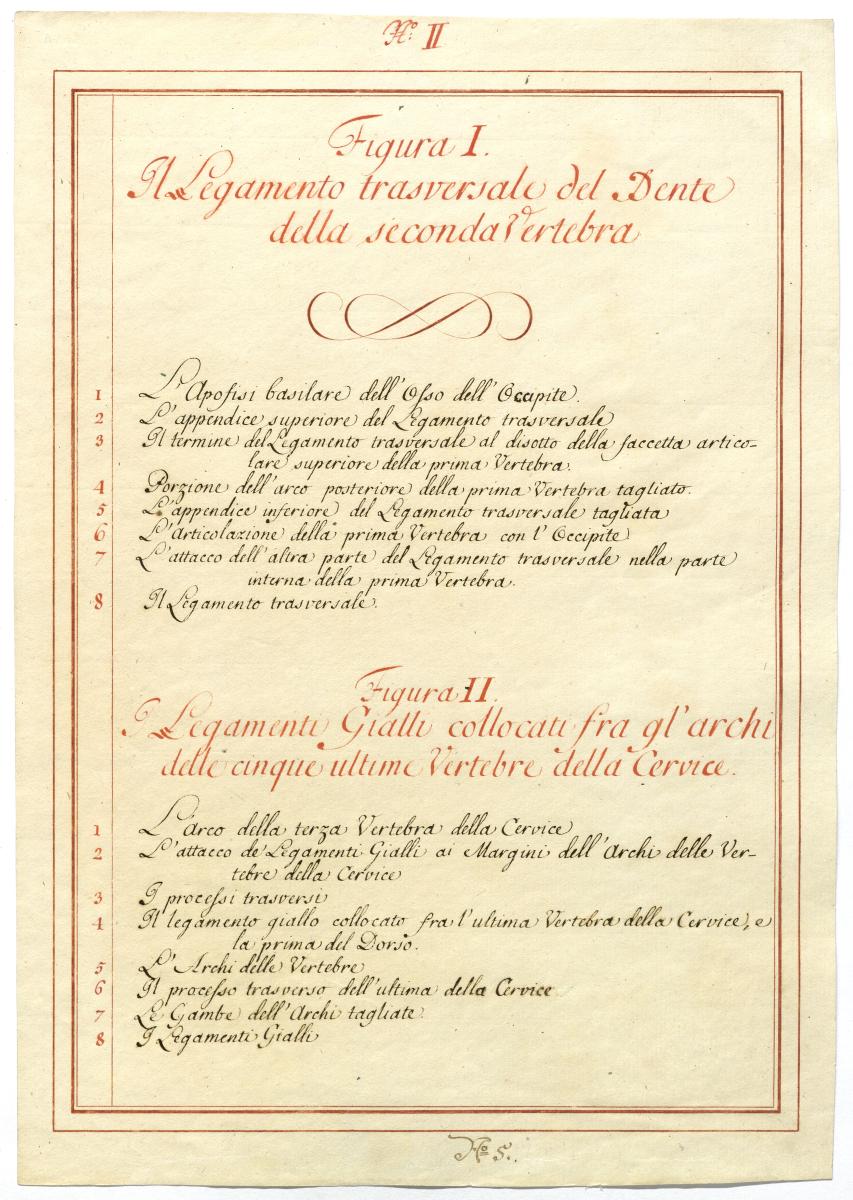 N.º II
Figura I.
Il Legamento trasversale del Dente
della seconda Vertebra
1 L'Apofisi basilare dell'Osso dell'Occipite.
2 L'appendice superiore del Legamento trasversale
3 Il termine del Legamento trasversale al disotto della faccetta artico-
lare superiore della prima Vertebra.
4 Porzione dell'arco posteriore della prima Vertebra tagliato.
5 L'appendice inferiore del Legamento trasversale tagliata
6 L'Articolazione della prima Vertebra con l'Occipite
7 L'attacco dell'altra parte del Legamento trasversale nella parte
interna della prima Vertebra.
8 Il Legamento trasversale.
Figura II.
I Legamenti Gialli collocati fra gl'archi
delle cinque ultime Vertebre della Cervice.
1 L'arco della terza Vertebra della Cervice
2 L'attacco de' Legamenti Gialli ai Margini dell'Archi delle Ver-
tebre della Cervice
3 I processi trasversi
4 Il legamento giallo collocato fra l'ultima Vertebra della Cervice, e
la prima del Dorso.
5 L'Archi delle Vertebre
6 Il processo trasverso dell'ultima della Cervice
7 Le Gambe dell'Archi tagliate.
8 I Legamenti Gialli
Nº 5.